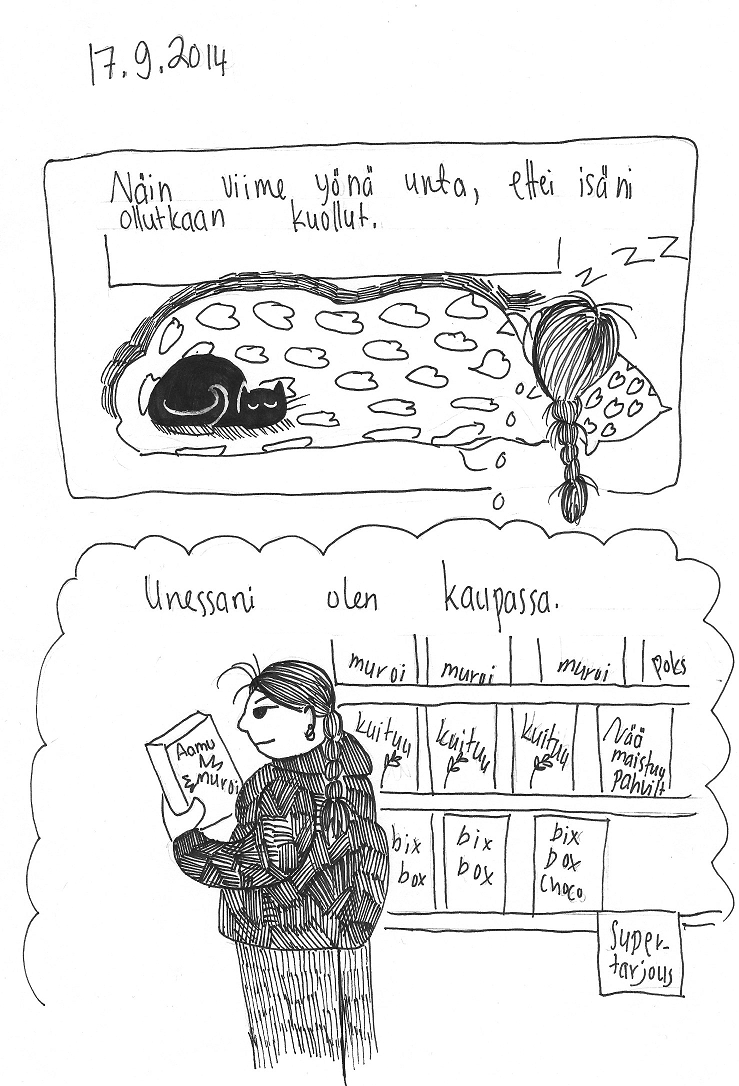 17.9.2014
Näin viime yönä unta, ettei isäni
ollutkaan kuollut.
Unessani olen kaupassa.
muroi
muroi
muroi
poks
Aamu
muroi
kuituu
kuituu
kuituu
Nää
maistuu
pahvilt
bix
box
bix
box
bix
box
choco
Super-
tarjous